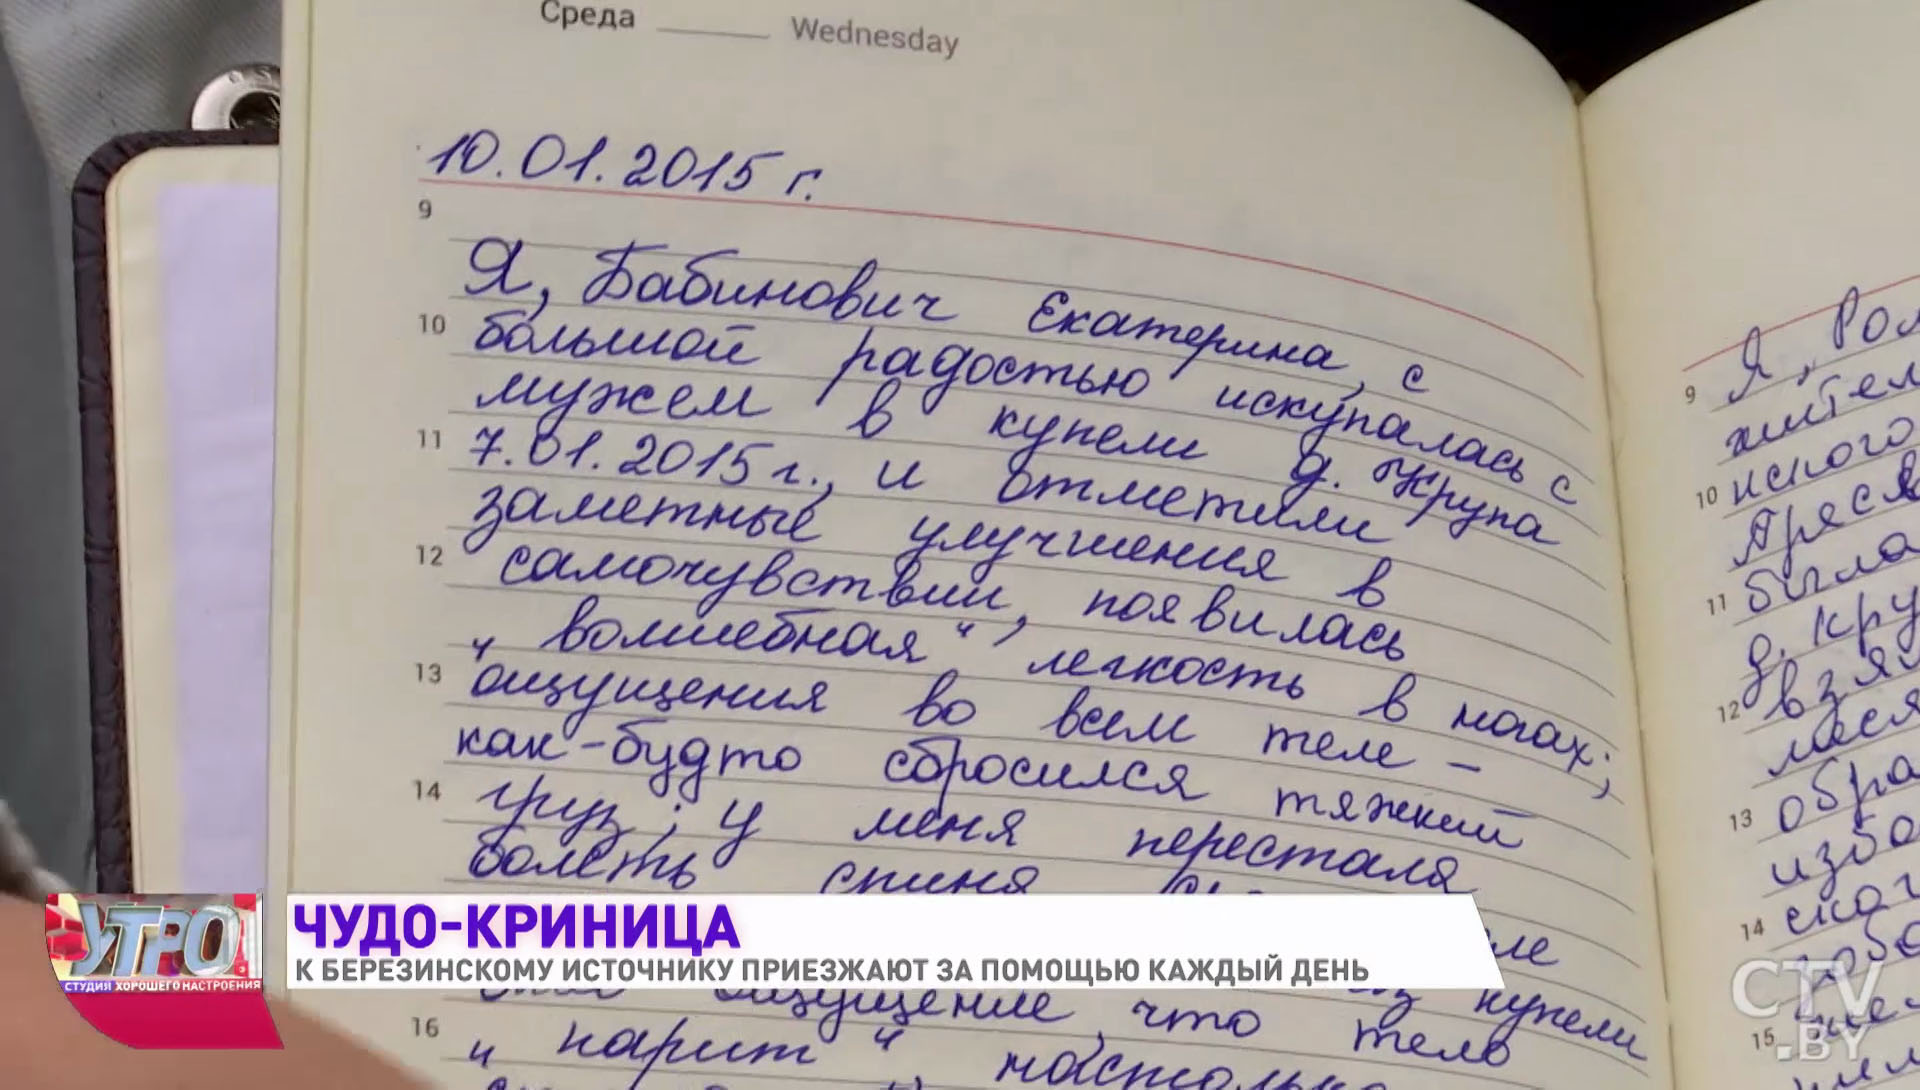 Среда Wednesday
10.01.2015 г.
9
Я, Бабинович Екатерина, с
10
большой радостью искупалась с
мужем в купели д. Крупа
11
7.01.2015 г., и отметили
заметные улучшения в
12
самочувствии, появилась
„волшебная“ легкость в ногах;
13
ощущения во всем теле –
как-будто сбросился тяжкий
14
груз; у меня перестала
болеть спина
купели
ощущение, что тело
16
„парит“ настолько
9
Я, Ром
жител
10
нского
11
была
д. Кру
12
взя
13
обра
избо
14
15
УТРО
СТУДИЯ ХОРОШЕГО НАСТРОЕНИЯ
ЧУДО-КРИНИЦА
К БЕРЕЗИНСКОМУ ИСТОЧНИКУ ПРИЕЗЖАЮТ ЗА ПОМОЩЬЮ КАЖДЫЙ ДЕНЬ
CTV
.BY